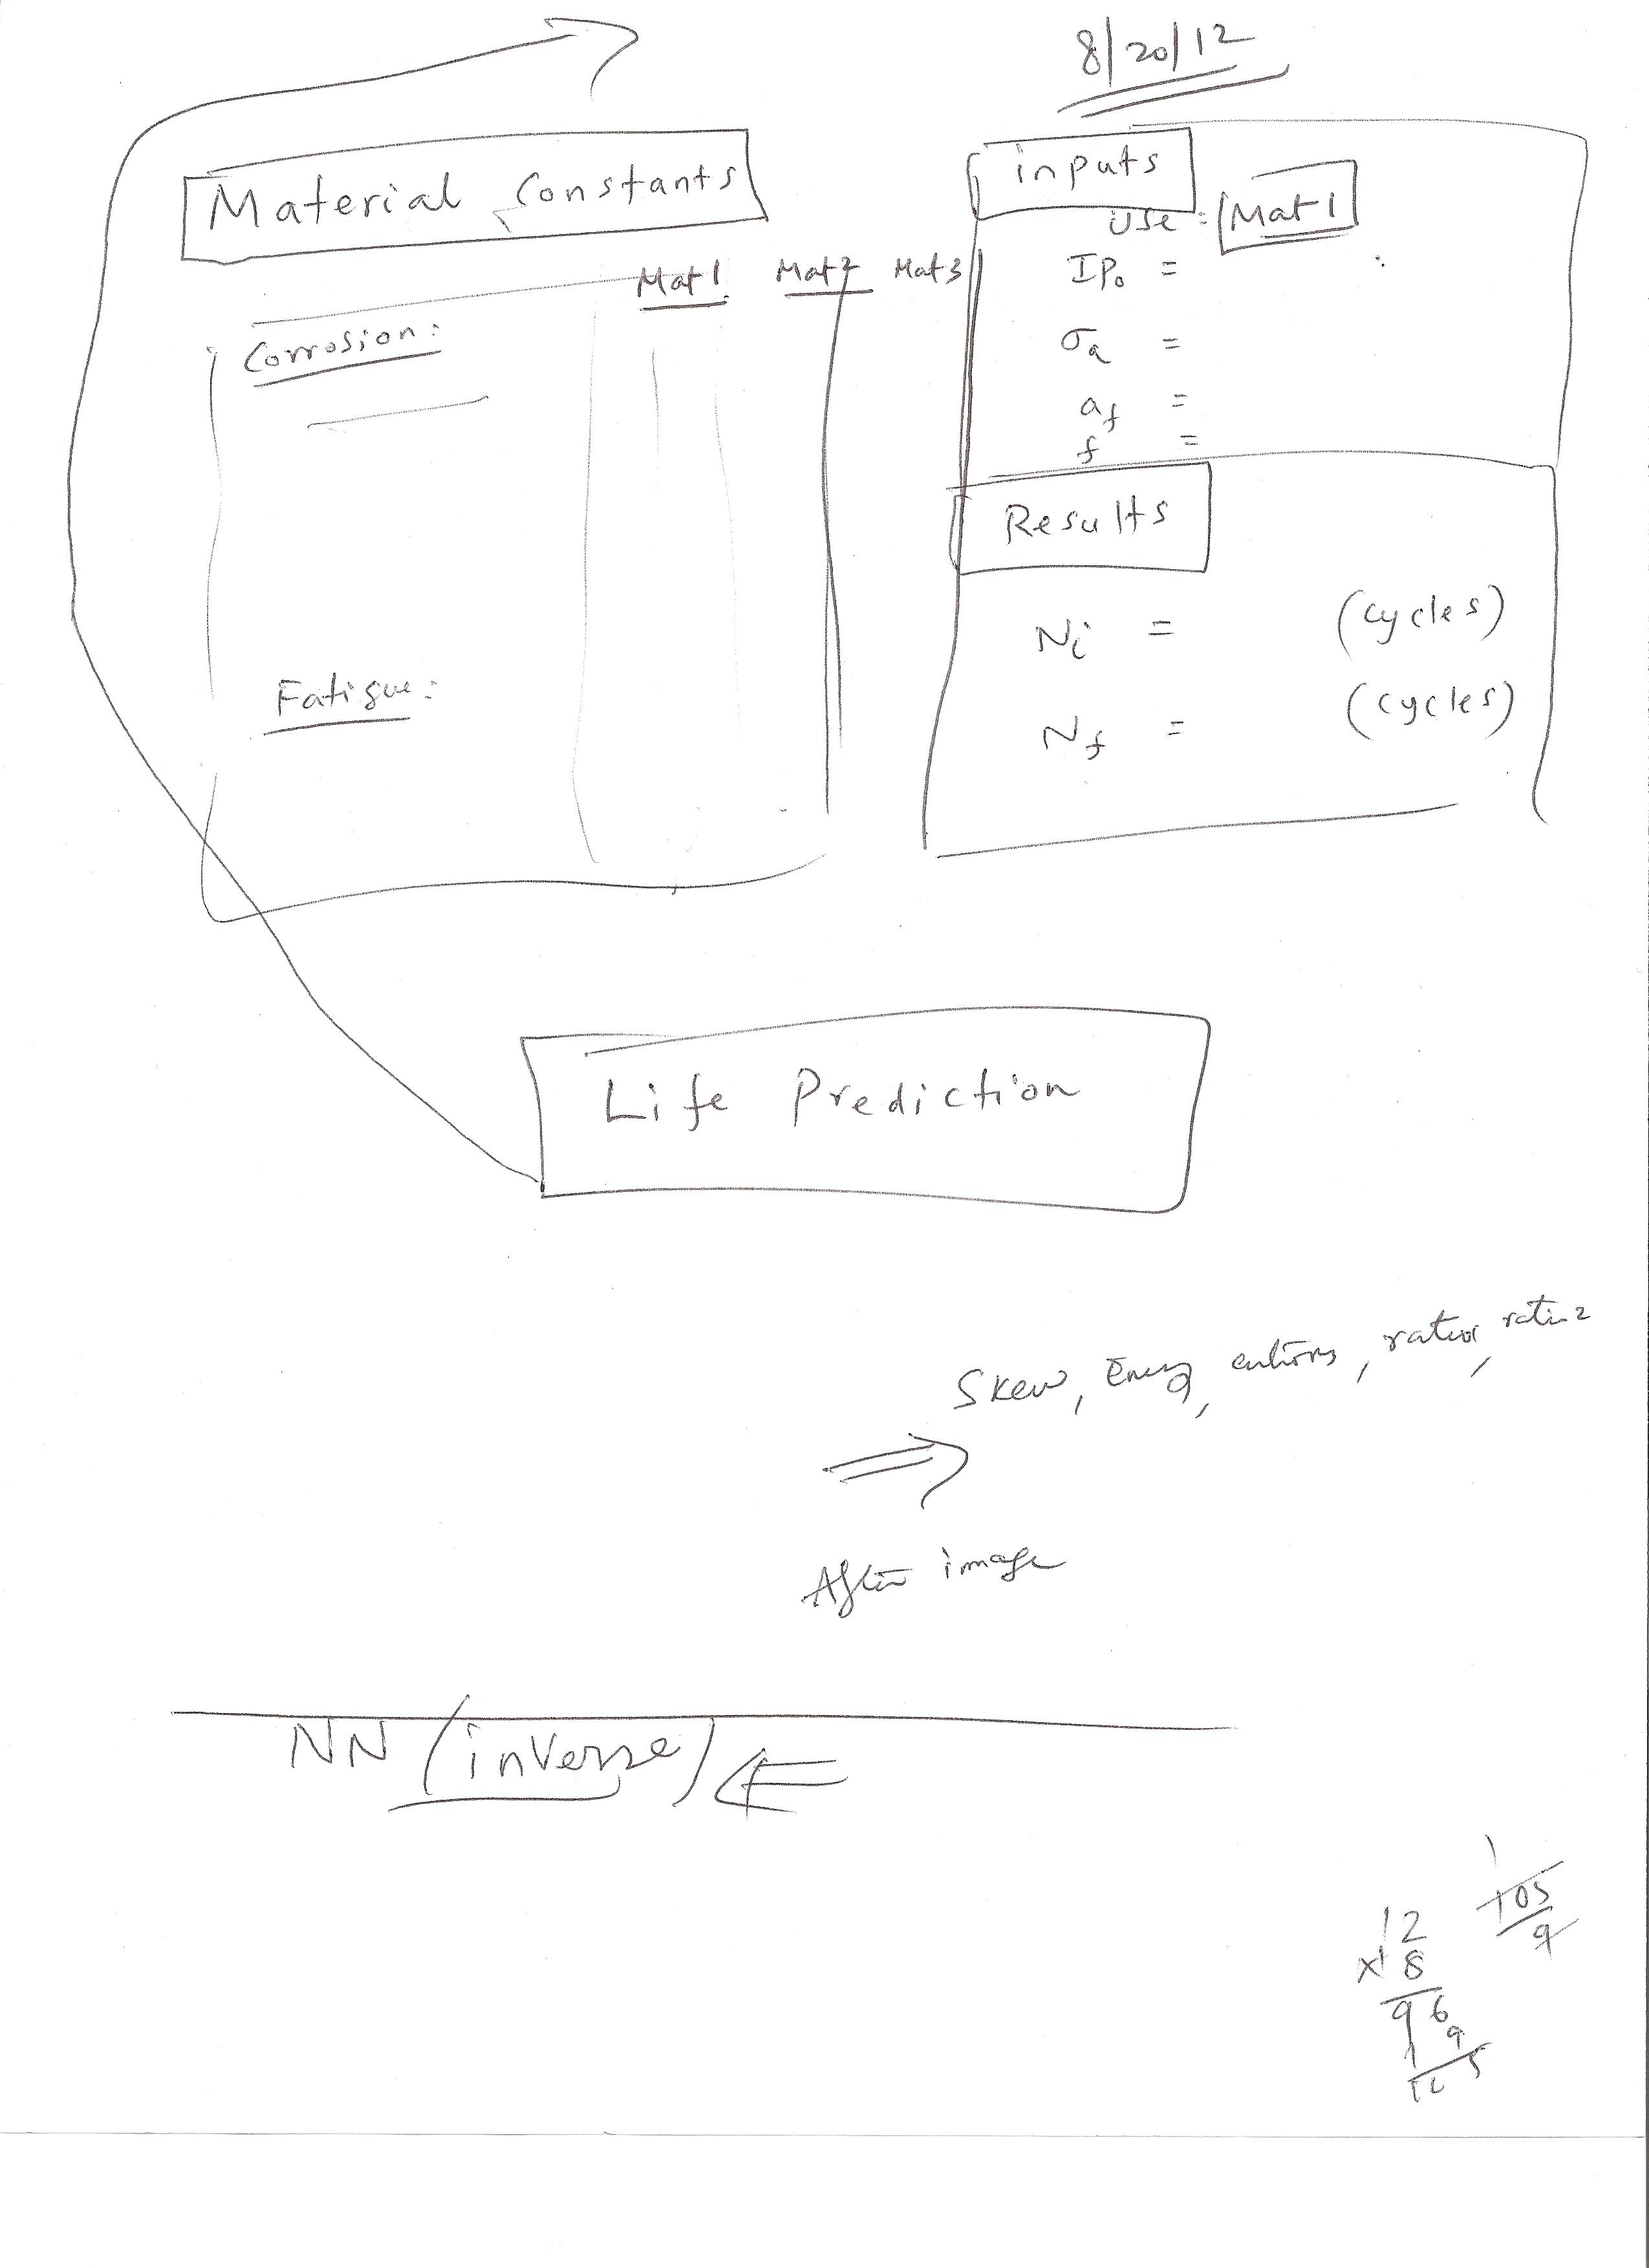 8/20/12
Material Constants
Mat1 Mat2 Mat3
Corrosion:
Fatigue:
inputs
Use = Mat1
IP₀ =
σₐ =
a_f =
f =
Results
Nᵢ = (cycles)
N_f = (cycles)
Life Prediction
Skew, Energ, , ratio, ratio2
⇒
After image
NN (inverse) ⇐
105
9
12
x 8
96
9
105